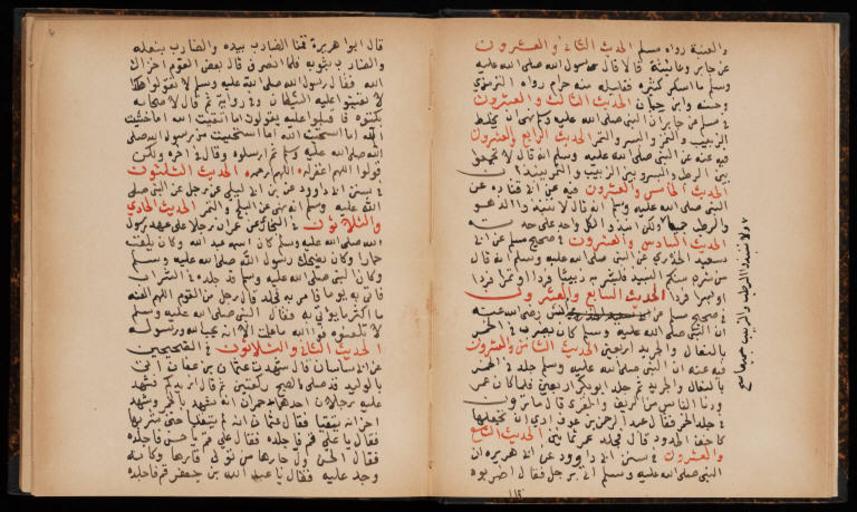 والعنبة رواه مسلم الحديث الثاني والعشرون
عن جابر وعائشة قالا قال رسول الله صلى الله عليه
وسلم ما اسكر كثيره فقليله منه حرام رواه الترمذي
وحسنه وابن حبان الحديث الثالث والعشرون
في مسلم عن جابر ان النبي صلى الله عليه وسلم نهى ان يخلط
الزبيب والتمر والبسر والتمر الحديث الرابع والعشرون
فيه عنه عن النبي صلى الله عليه وسلم انه قال لا تجمعوا
بين الرطب والبسر وبين الزبيب والتمر نبيذا
الحديث الخامس والعشرون فيه عن ابي قتادة عن
النبي صلى الله عليه وسلم انه قال لا تنبذوا الزهو
والرطب جميعا ولكن انبذوا كل واحد على حدته
الحديث السادس والعشرون في صحيح مسلم عن ابي
سعيد الخدري عن النبي صلى الله عليه وسلم انه قال
من شرب منكم النبيذ فليشربه زبيبا فردا او تمرا فردا
او بسرا فردا الحديث السابع والعشرون
في صحيح مسلم عن انس رضي الله عنه
ان النبي صلى الله عليه وسلم كان يضرب في الخمر
بالنعال والجريد اربعين الحديث الثامن والعشرون
فيه عنه ان النبي صلى الله عليه وسلم جلد في الخمر
بالنعال والجريد ثم جلد ابو بكر اربعين فلما كان عمر
ودنا الناس من الريف والقرى قال ما ترون
في جلد الخمر فقال عبد الرحمن بن عوف ارى ان تجعلها
كاخف الحدود قال فجلد عمر ثمانين الحديث التاسع
والعشرون في سنن ابي داوود عن ابي هريرة ان
النبي صلى الله عليه وسلم اتي برجل فقال اضربوه
ولا تنبذوا الرطب والزبيب جميعا صح
قال ابوا هريرة فمنا الضارب بيده والضارب بنعله
والضارب بثوبه فلما انصرف قال بعض القوم اخزاك
الله فقال رسول الله صلى الله عليه وسلم لا تقولوا هكذا
لا تعينوا عليه الشيطان وفي رواية ثم قال لاصحابه
بكتوه فاقبلوا عليه يقولون اما اتقيت الله اما خشيت
الله اما استحييت من رسول الله صلى
الله عليه وسلم ثم ارسلوه وقال في اخره ولكن
قولوا اللهم اغفر له اللهم ارحمه الحديث الثلاثون
في سنن ابي داوود عن بن ابي ليلى عن رجل عن النبي صلى
الله عليه وسلم انه نهى عن البلح والتمر الحديث الحادي
والثلاثون في البخاري عن عمر ان رجلا على عهد رسول
الله صلى الله عليه وسلم كان اسمه عبد الله وكان يلقب
حمارا وكان يضحك رسول الله صلى الله عليه وسلم
وكان النبي صلى الله عليه وسلم قد جلده في الشراب
فاتي به يوما فامر به فجلد قال رجل من القوم اللهم العنه
ما اكثر ما يؤتى به فقال النبي صلى الله عليه وسلم
لا تلعنوه فوالله ما علمت الا انه يحب الله ورسوله
الحديث الثاني والثلاثون في الصحيحين
عن ابي ساسان قال شهدت عثمان بن عفان اتي
بالوليد قد صلى الصبح ركعتين ثم قال ازيدكم فشهد
عليه رجلان احدهما حمران انه شهد بالخمر وشهد
اخر انه يتقيا فقال عثمان انه لم يتقيا حتى شربها
فقال يا علي قم فاجلده فقال علي قم يا حسن فاجلده
فقال الحسن ول حارها من تولى قارها وكانه
وجد عليه فقال يا عبد الله بن جعفر قم فاجلده